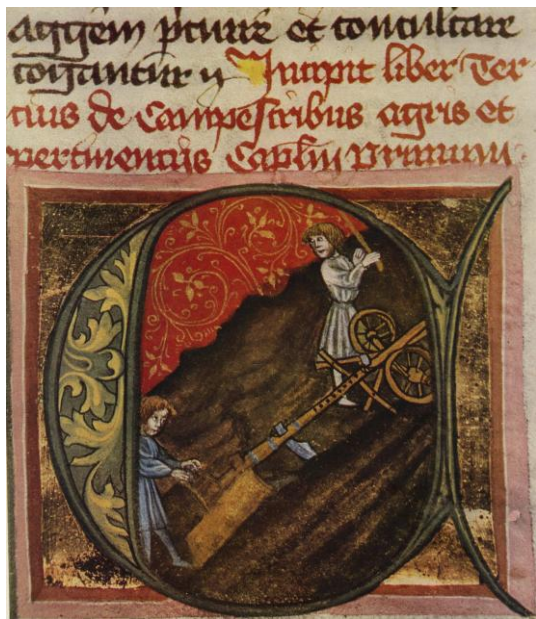 aggem pcurre et conculcare
cogantur Incipit liber Ter
cius de Campestribus agris et
pertinentijs Caplm Primum